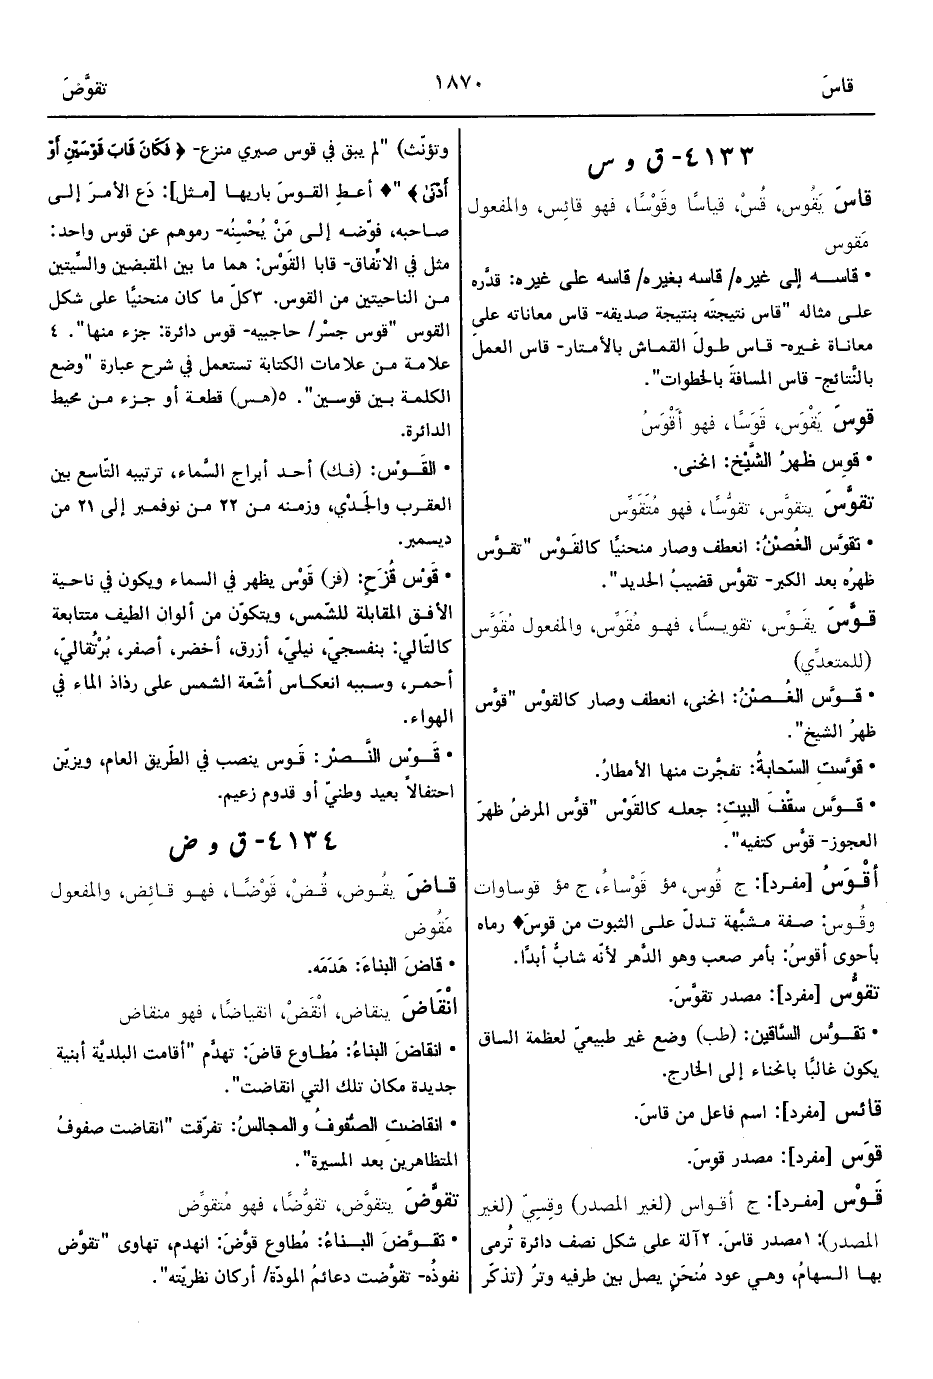 قاسَ
١٨٧٠
تقوَّضَ
٤١٣٣- ق و س
قاسَ يَقُوس، قُسْ، قياسًا وقَوْسًا، فهو قائِس، والمفعول
مَقوس
• قاسـه إلى غيره/ قاسه بغيره/ قاسه على غيره: قدَّره
على مثاله "قاس نتيجتَه بنتيجة صديقه- قاس معاناته على
معاناة غيره- قاس طولَ القماش بالأمتار- قاس العملَ
بالنَّتائج- قاس المسافةَ بالخطوات".
قوِسَ يَقْوَس، قَوَسًا، فهو أقْوَسُ
• قوِس ظهرُ الشَّيْخ: انحنى.
تقوَّسَ يتقوَّس، تقوُّسًا، فهو مُتَقوِّس
• تقوَّس الغُصْنُ: انعطف وصار منحنيًا كالقَوْس "تقـوَّس
ظهرُه بعد الكبر- تقوَّس قضيبُ الحديد".
قـوَّسَ يقـوِّس، تقويـسًا، فهـو مُقوِّس، والمفعول مُقوَّس
(للمتعدِّي)
• قـوَّس الغُـصْنُ: انحنى، انعطف وصار كالقوْس "قوَّس
ظهرُ الشيخ".
• قوَّست السَّحابةُ: تفجَّرت منها الأمطارُ.
• قـوَّس سقْفَ البيتِ: جعله كالقَوْس "قوَّس المرضُ ظهرَ
العجوز- قوَّس كتفيه".
أقْوَسُ [مفرد]: ج قُوس، مؤ قَوْساءُ، ج مؤ قوساوات
وقُـوس: صفة مشبَّهة تدلّ على الثبوت من قوِسَ♦ رماه
بأحوى أقوسُ: بأمر صعب وهو الدَّهر لأنّه شابٌّ أبدًا.
تقوُّس [مفرد]: مصدر تقوَّسَ.
• تقـوُّس السَّاقين: (طب) وضع غير طبيعيّ لعظمة الساق
يكون غالبًا بانحناء إلى الخارج.
قائس [مفرد]: اسم فاعل من قاسَ.
قوَس [مفرد]: مصدر قوِسَ.
قَـوْس [مفـرد]: ج أقـواس (لغير المصدر) وقِسِيّ (لغير
المصدر): ١مصدر قاسَ. ٢آلة على شكل نصف دائرة تُرمى
بهـا السـهامُ، وهـي عود مُنحَنٍ يصل بين طرفيه وترُ (تذكّر
وتؤنّث) "لم يبق في قوس صبري منزع- ﴿ فَكَانَ قَابَ قَوْسَيْنِ أَوْ
أَدْنَىٰ ﴾ "♦ أعـطِ القـوسَ باريهـا [مـثل]: دَع الأمـرَ إلـى
صـاحبه، فوّضـه إلـى مَنْ يُحْسِنُه- رموهم عن قوس واحد:
مثل في الاتّفاق- قابا القَوْس: هما ما بين المقبضين والسِّيتين
مـن الناحيتين من القوس. ٣كلّ ما كان منحنيًّا على شكل
القوس "قوس جسْر/ حاجبيه- قوس دائرة: جزء منها". ٤
علامة مـن علامات الكتابة تستعمل في شرح عبارة "وضع
الكلمة بين قوسين". ٥(هـس) قطعة أو جزء مـن محيط
الدائرة.
• القَـوْس: (فـك) أحـد أبراج السَّماء، ترتيبه التّاسع بين
العقرب والجَدْي، وزمنه مـن ٢٢ مـن نوفمبر إلى ٢١ من
ديسمبر.
• قَوْس قُزَح: (فز) قَوْس يظهر في السماء ويكون في ناحـية
الأفـق المقابلة للشّمس، ويتكوّن من ألوان الطيف متتابعة
كالتّالي: بنفسجيّ، نيليّ، أزرق، أخضر، أصفر، بُرْتُقاليّ،
أحمـر، وسـببه انعكـاس أشعّة الشمس على رذاذ الماء في
الهواء.
• قَـوْس النَّـصر: قَـوس ينصب في الطّريق العام، ويزيّن
احتفالاً بعيد وطنيّ أو قدوم زعيم.
٤١٣٤- ق و ض
قـاضَ يقُـوض، قُـضْ، قَوْضًـا، فهـو قـائِض، والمفعول
مَقُوض
• قاضَ البناءَ: هَدَمَه.
انْقَاضَ ينقاض، انْقَضْ، انقياضًا، فهو منقاض
• انقاضَ البناءُ: مُطـاوع قاضَ: تهدَّم "أقامت البلديَّة أبنية
جديدة مكان تلك التي انقاضت".
• انقاضـت الصـُّفوفُ و المجالسُ: تفرّقت "انقاضت صفوفُ
المتظاهرين بعد المسيرة".
تقوَّضَ يتقوَّض، تقوُّضًا، فهو مُتقوِّض
• تقـوَّضَ البـناءُ: مُطاوع قوَّضَ: انهدم، تهاوى "تقوَّض
نفوذُه- تقوَّضت دعائمُ المودّة/ أركان نظريّته".